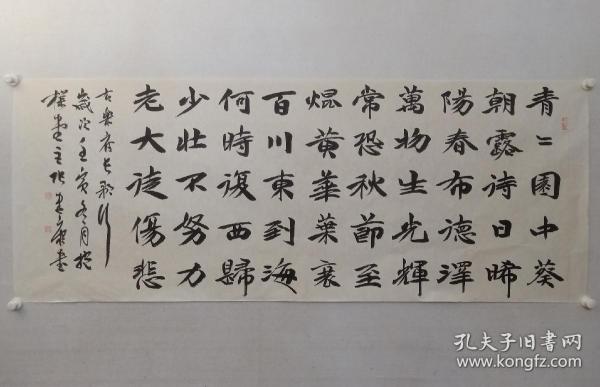 青〻園中葵
朝露诗日晞
陽春布德澤
萬物生光輝
常恐秋節至
焜黄華葉衰
百川東到海
何時復西歸
少壯不努力
老大徒傷悲
古樂府长歌行
歲次壬寅冬月於
孔夫子旧书网
www.kongfz.com